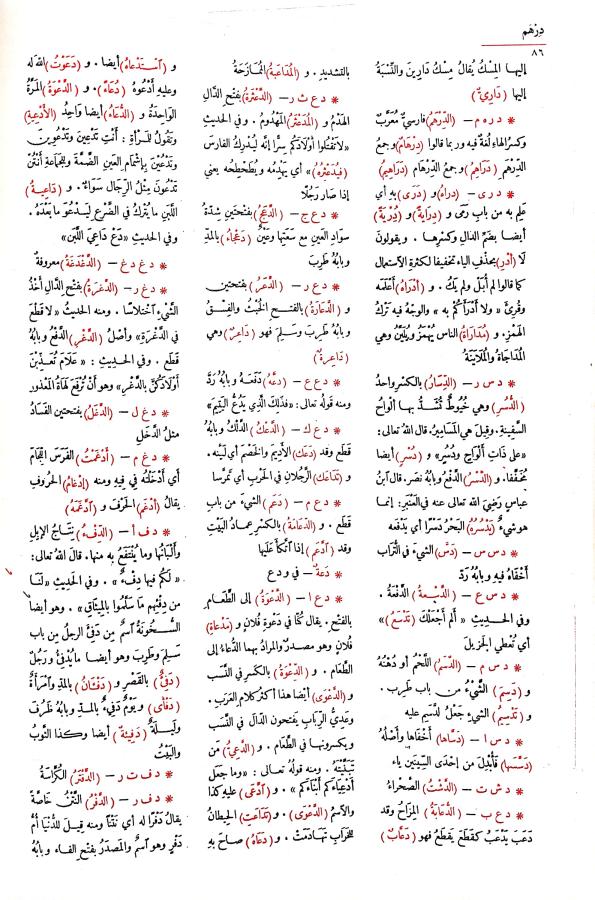 دِرْهَم
٨٦
إليها المِسْكُ يُقالُ مِسْكُ دَارِينَ والنِّسْبَةُ
إليها (دَارِيّ)
* د ر ه م – (الدِّرْهَمُ) فارسيٌّ مُعَرَّبٌ
وكسرُ الهاءِ لُغَةٌ فيه وربما قالوا (دِرْهَامٌ) وجمعُ
الدِّرْهَمِ (دَرَاهِمُ) وجمعُ الدِّرْهَامِ (دَرَاهِيمُ)
* د ر ى – (دراه) و (دَرَى) به أي
عَلِمَ به من باب رَمَى و (دِرَايَةً) و (دُرْيَةً)
أيضا بضمّ الدال وكسرها . ويقولون
لا (أَدْرِ) بحذف الياء تخفيفا لكثرة الاستعمال
كما قالوا لم أُبَلْ ولم يَكُ . و (أَدْرَاهُ) أَعْلَمَه
وقُرِئَ « ولا أَدْرَأَكُم به » والوجْهُ فيه تَرْكُ
الهَمْزِ . و (مُدَارَاةُ) الناس يُهْمَزُ ويُلَيَّنُ وهي
المُدَاجَاةُ والمُلَايَنَةُ
* د س ر – (الدِّسَارُ) بالكسْرِ واحدُ
(الدُّسُرِ) وهي خُيُوطٌ تُشَدُّ بها ألواحُ
السَّفِينَةِ وقيلَ هي المَسَامِيرُ . قال اللهُ تعالى:
«على ذَاتِ أَلْوَاحٍ ودُسُرٍ» و (دُسْرٍ) أيضا
مُخَفَّفًا . و (الدَّسْرُ) الدَّفْعُ وبابُهُ نَصَرَ . قال ابنُ
عباس رَضِيَ الله تعالى عنه في العَنْبَرِ : إنما
هو شيءٌ (يَدْسُرُهُ) البَحْرُ دَسْرًا أي يَدْفَعُه
* د س س – (دَسَّ) الشيءَ في التُّراب
أَخْفَاهُ فيه وبابُهُ رَدَّ
* د س ع – (الدَّسِيعَةُ) الدَّفْعَةُ .
وفي الحديثِ « أَلَم أَجْعَلْكَ (تَدْسَعُ) »
أي تُعطي الجَزِيلَ
* د س م – (الدَّسَمُ) اللَّحْمُ أو دُهْنُهُ
و (دَسِمَ) الشَّيْءُ من باب طَرِبَ .
و (تَدْسِيمُ) الشيءِ جَعْلُ الدَّسَمِ عليه
* د س ا – (دَسَّاها) أَخْفَاهَا وأَصْلُهُ
(دَسَّسَهَا) فَأُبْدِلَ من إحْدَى السِّينَيْنِ ياء
* د ش ت – (الدَّشْتُ) الصَّحْراءُ
* د ع ب – (الدُّعَابَةُ) المِزَاحُ وقد
دَعَبَ يَدْعَبُ كَقَطَعَ يَقْطَعُ فهو (دَعَّابٌ)
بالتشديد . و (المُدَاعَبَةُ) المُمَازَحَةُ
* د ع ث ر – (الدَّعْثَرَةُ) بفتح الدالِ
الهَدْمُ و (المُدَعْثَرُ) المَهْدُومُ . وفي الحديثِ
« لا تَقْتُلُوا أَوْلادَكم سِرًّا إنَّه لَيُدْرِكُ الفارسَ
(فيُدَعْثِرُهُ) » أي يَهْدِمُه ويُطَحْطِحُه يعني
إذا صارَ رَجُلًا
* د ع ج – (الدَّعَجُ) بفتحتين شِدَّةُ
سوادِ العين مع سَعَتِها وعَيْنٌ (دَعْجَاءُ) بالمدِّ
وبابُهُ طَرِبَ
* د ع ر – (الدَّعَرُ) بفتحتين
و (الدَّعَارَةُ) بالفتــح الخُبْثُ والفِسْقُ
وبابُهُ طَرِبَ وسَلِمَ فهو (دَاعِرٌ) وهي
(دَاعِرةٌ)
* د ع ع – (دَعَّهُ) دَفَعَهُ وبابُهُ رَدَّ
ومنه قولُه تعالى: «فذَلِكَ الَّذِي يَدُعُّ اليَتِيمَ»
* د ع ك – (الدَّعْكُ) الدَّلْكُ وبابُهُ
قَطَعَ وقد (دَعَكَ) الأَدِيمَ والخَصْمَ أي لَيَّنَه .
و (تَدَاعَكَ) الرَّجُلان في الحَرْبِ أي تَمَرَّسَا
* د ع م – (دَعَمَ) الشيءَ من باب
قَطَعَ . و (الدِّعَامَةُ) بالكسْرِ عِمادُ البَيْتِ
وقد (ادَّعَمَ) إذا اتَّكَأَ عَلَيها
* دَعَةٌ – في ودع
* د ع ا – (الدَّعْوَةُ) إلى الطَّعَامِ
بالفتْحِ . يقالُ كُنَّا في دَعْوَةِ فُلَانٍ و (مَدْعَاةِ)
فُلَانٍ وهو مصدرٌ والمرادُ بهما الدُّعاءُ إلى
الطَّعَامِ . و (الدِّعْوَةُ) بالكسْرِ في النَّسَبِ
و (الدَّعْوَى) أيضا هذا أَكثرُ كلامِ العَرَبِ .
وعَدِيُّ الرِّبَابِ يَفتحون الدالَ في النَّسَبِ
ويكسرونها في الطَّعَامِ . و (الدَّعِيُّ) مَن
تَبَنَّيْتَهُ . ومنه قولُهُ تعـالى : «وما جَعَلَ
أَدْعِيَاءَكُم أَبْنَاءَكُم » . و (ادَّعَى) عليه كذا
والاسمُ (الدَّعْوَى) . و (تَدَاعَتِ) الحِيطانُ
للخَرَابِ تَهَادَمَتْ . و (دَعَاهُ) صاحَ به
و (اسْتَدْعَاهُ) أيضا . و (دَعَوْتُ) الله له
وعليه أَدْعُوهُ (دُعَاءً) . و (الدَّعْوَةُ) المَرَّةُ
الواحِدَةُ و (الدُّعَاءُ) أيضا واحِدُ (الأَدْعِيَةِ)
وتقولُ للمرأة : أَنْتِ تَدْعِينَ وتَدْعُوِينَ
وتَدْعُيْنَ بإشْمَامِ العَيْنِ الضَّمَّةَ وللجماعة أَنْتُنَّ
تَدْعُونَ مِثْلُ الرِّجال سَوَاءً . و (دَاعِيَةُ)
اللَّبَنِ ما يُتْرَكُ في الضَّرْعِ ليَدْعُوَ ما بَعْدَهُ .
وفي الحديثِ «دَعْ دَاعِيَ اللَّبَنِ»
* د غ د غ – (الدَّغْدَغَةُ) معروفةٌ
* د غ ر – (الدَّغْرَةُ) بفتْح الدّالِ أَخْذُ
الشَّيْءِ اخْتِلاسًا . ومنه الحديثُ «لا قَطْعَ
في الدَّغْرَةِ» وأَصْلُ (الدَّغْرِ) الدَّفْعُ وبابُهُ
قَطَعَ . وفي الحديثِ : « عَلَامَ تُعَذِّبْنَ
أَوْلَادَكُنَّ بالدَّغْرِ» وهو أَنْ تَرْفَعَ لَهَاةَ المَعْذُورِ
* د غ ل – (الدَّغَلُ) بفتحتين الفَسَادُ
مثلُ الدَّخَلِ
* د غ م – (أَدْغَمْتُ) الفَرَسَ اللِّجَامَ
أي أَدْخَلْتُهُ في فِيهِ ومنه (إدْغَامُ) الحُرُوفِ
يقالُ (أَدْغَمَ) الحَرْفَ و (ادَّغَمَه)
* د ف أ – (الدِّفْءُ) نِتَاجُ الإبِل
وأَلْبَانُها وما يُنْتَفَعُ به منها . قالَ اللهُ تعالى:
« لكُم فيها دِفْءٌ » . وفي الحديثِ « لَنَا
مِن دِفْئِهِم مَا سَلَّمُوا بالمِيثَاقِ» . وهو أيضاً
السُّخُونَةُ اسمٌ مِن دَفِئَ الرجُل مِن بابِ
سَلِمَ وطَرِبَ وهو أيضا ما يُدْفِئُ ورَجُلٌ
(دَفِئٌ) بالقَصْرِ و (دَفْآنُ) بالمدِّ وامْرَأَةٌ
(دَفْأَى) و يَوْمٌ دَفِيءٌ بالمــدِّ وبابُهُ ظَرُفَ
ولَيــلَةٌ (دَفِيئَةٌ) أيضا وكذا الثَّوبُ
والبَيْتُ
* د ف ت ر – (الدَّفْتَرُ) الكُرَّاسَةُ
* د ف ر – (الدَّفْرُ) النَّتْنُ خاصَّةً
يقالُ دَفْرًا له أي نَتْنًا ومنه قِيلَ للدُّنْيَا أُمُّ
دَفْرٍ وهو اسمٌ والمَصدَرُ بفتح الفــاء وبابُهُ